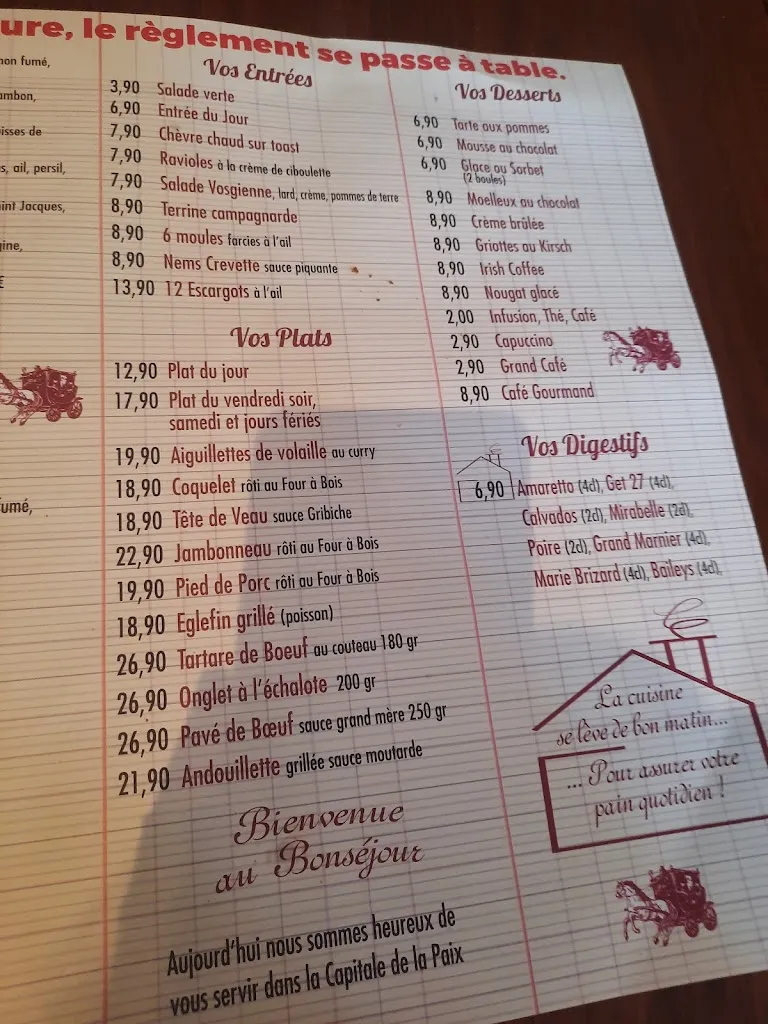 ure, le règlement se passe à table.
non fumé,
ambon,
isses de
s, ail, persil,
int Jacques,
gine,
€
umé,
Vos Entrées
3,90 Salade verte
6,90 Entrée du Jour
7,90 Chèvre chaud sur toast
7,90 Ravioles à la crème de ciboulette
7,90 Salade Vosgienne, lard, crème, pommes de terre
8,90 Terrine campagnarde
8,90 6 moules farcies à l'ail
8,90 Nems Crevette sauce piquante
13,90 12 Escargots à l'ail
Vos Plats
12,90 Plat du jour
17,90 Plat du vendredi soir,
samedi et jours fériés
19,90 Aiguillettes de volaille au curry
18,90 Coquelet rôti au Four à Bois
18,90 Tête de Veau sauce Gribiche
22,90 Jambonneau rôti au Four à Bois
19,90 Pied de Porc rôti au Four à Bois
18,90 Eglefin grillé (poisson)
26,90 Tartare de Boeuf au couteau 180 gr
26,90 Onglet à l'échalote 200 gr
26,90 Pavé de Bœuf sauce grand mère 250 gr
21,90 Andouillette grillée sauce moutarde
Bienvenue
au Bonséjour
Aujourd'hui nous sommes heureux de
vous servir dans la Capitale de la Paix
Vos Desserts
6,90 Tarte aux pommes
6,90 Mousse au chocolat
6,90 Glace ou Sorbet
(2 boules)
8,90 Moelleux au chocolat
8,90 Crème brûlée
8,90 Griottes au Kirsch
8,90 Irish Coffee
8,90 Nougat glacé
2,00 Infusion, Thé, Café
2,90 Capuccino
2,90 Grand Café
8,90 Café Gourmand
Vos Digestifs
6,90 Amaretto (4cl), Get 27 (4cl),
Calvados (2cl), Mirabelle (2cl),
Poire (2cl), Grand Marnier (4cl),
Marie Brizard (4cl), Baileys (4cl),
La cuisine
se lève de bon matin...
... Pour assurer votre
pain quotidien !